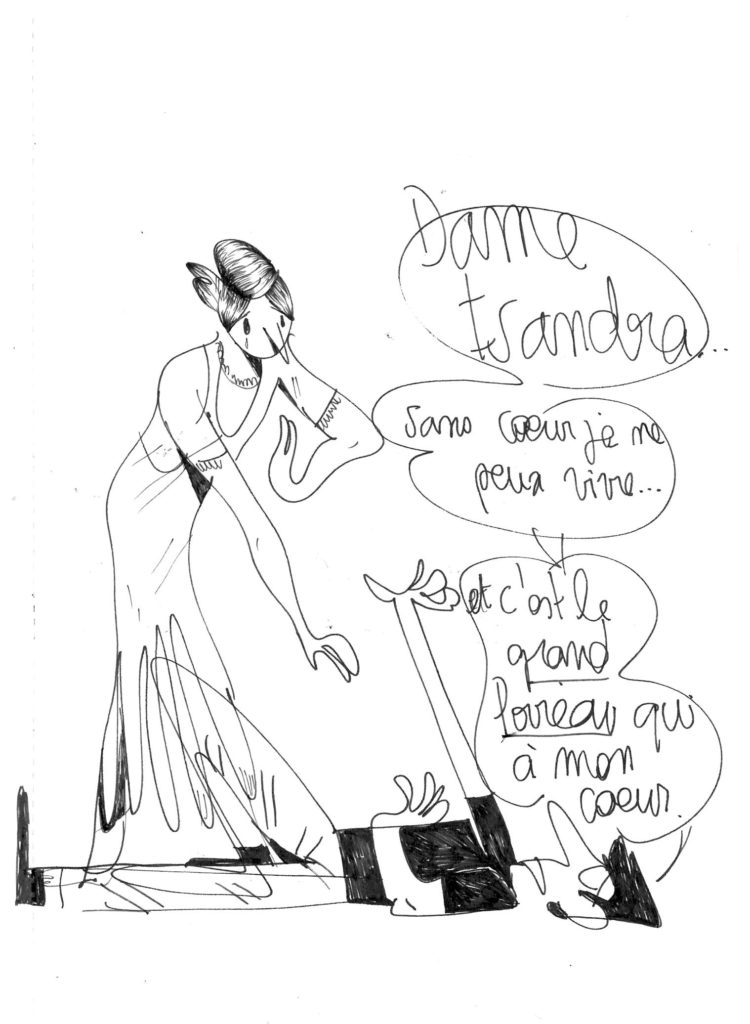 Dame
Esandra...
sans coeur je ne
peux vivre...
et c'est le
grand
Poireau qui
à mon
coeur.